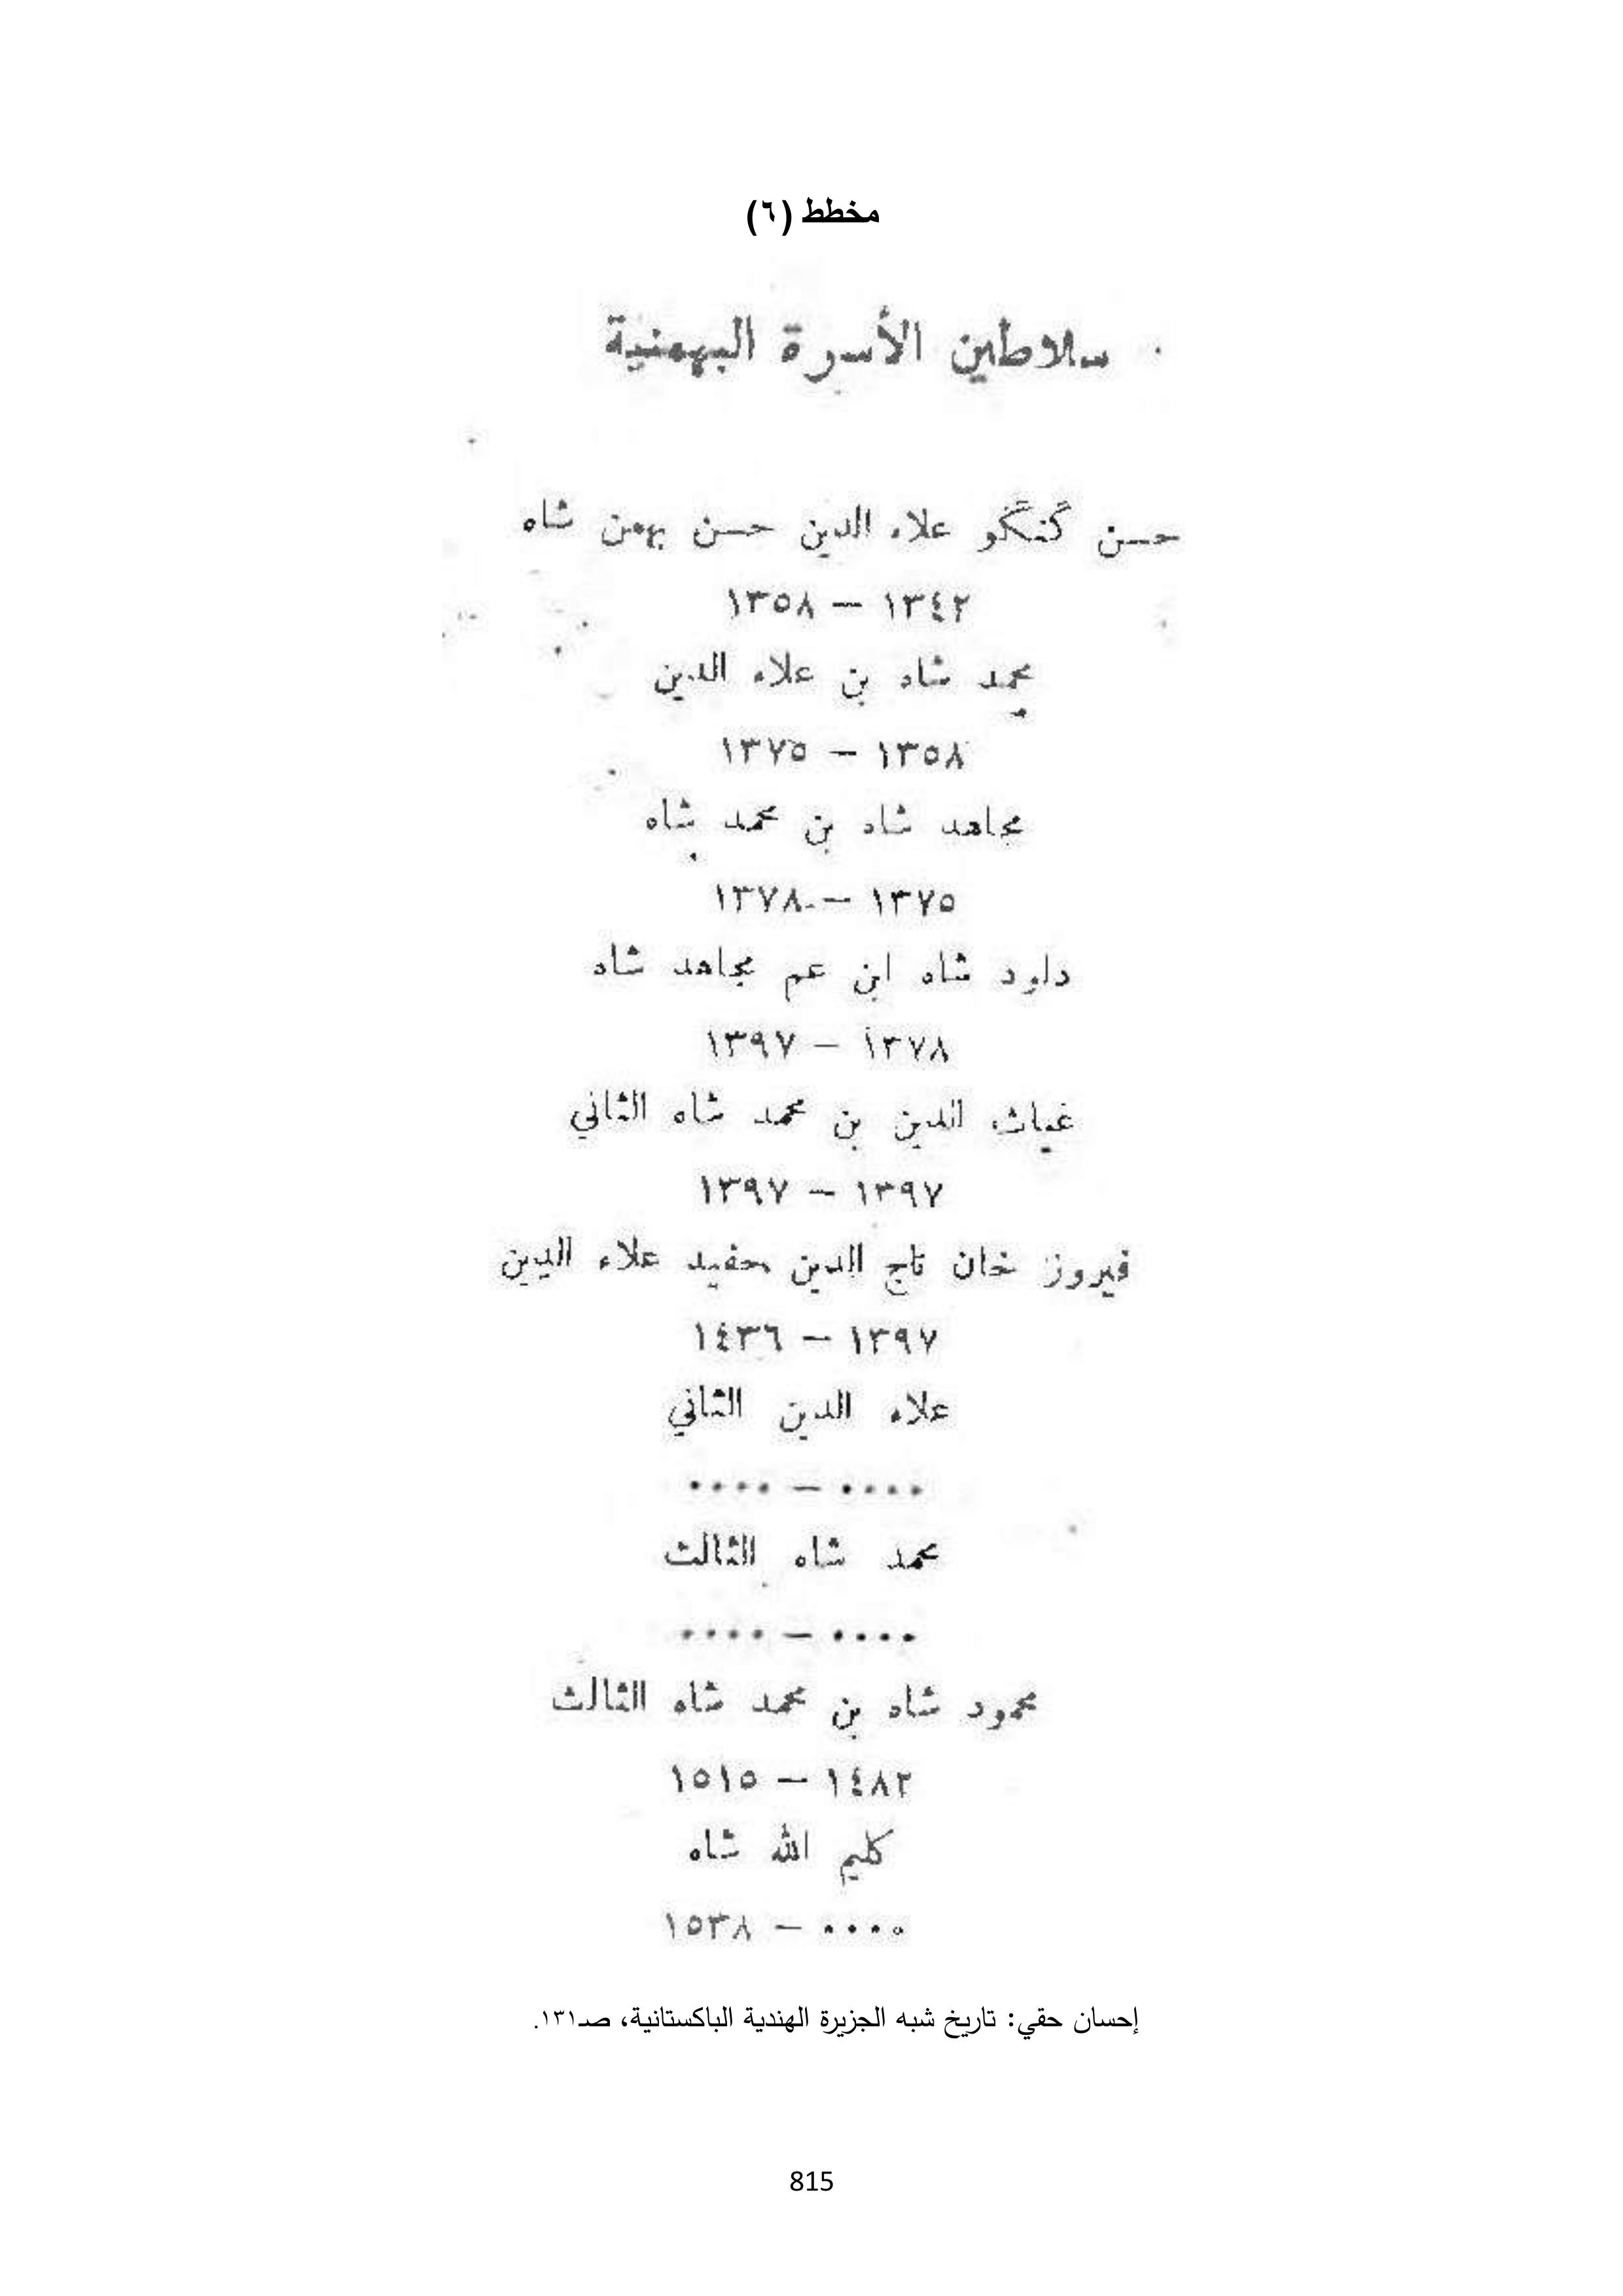 مخطط (٦)
سلاطين الأسرة البهمنية
حسن گنگو علاء الدين حسن بهمن شاه
١٣٤٢ – ١٣٥٨
محمد شاه بن علاء الدين
١٣٥٨ – ١٣٧٥
مجاهد شاه بن محمد شاه
١٣٧٥ – ١٣٧٨
داود شاه ابن عم مجاهد شاه
١٣٧٨ – ١٣٩٧
غياث الدين بن محمد شاه الثاني
١٣٩٧ – ١٣٩٧
فيروز خان تاج الدين حفيد علاء الدين
١٣٩٧ – ١٤٣٦
علاء الدين الثاني
٠٠٠٠ – ٠٠٠٠
محمد شاه الثالث
٠٠٠٠ – ٠٠٠٠
محمود شاه بن محمد شاه الثالث
١٤٨٢ – ١٥١٥
كليم الله شاه
٠٠٠٠ – ١٥٣٨
إحسان حقي: تاريخ شبه الجزيرة الهندية الباكستانية، صـ١٣١.
815